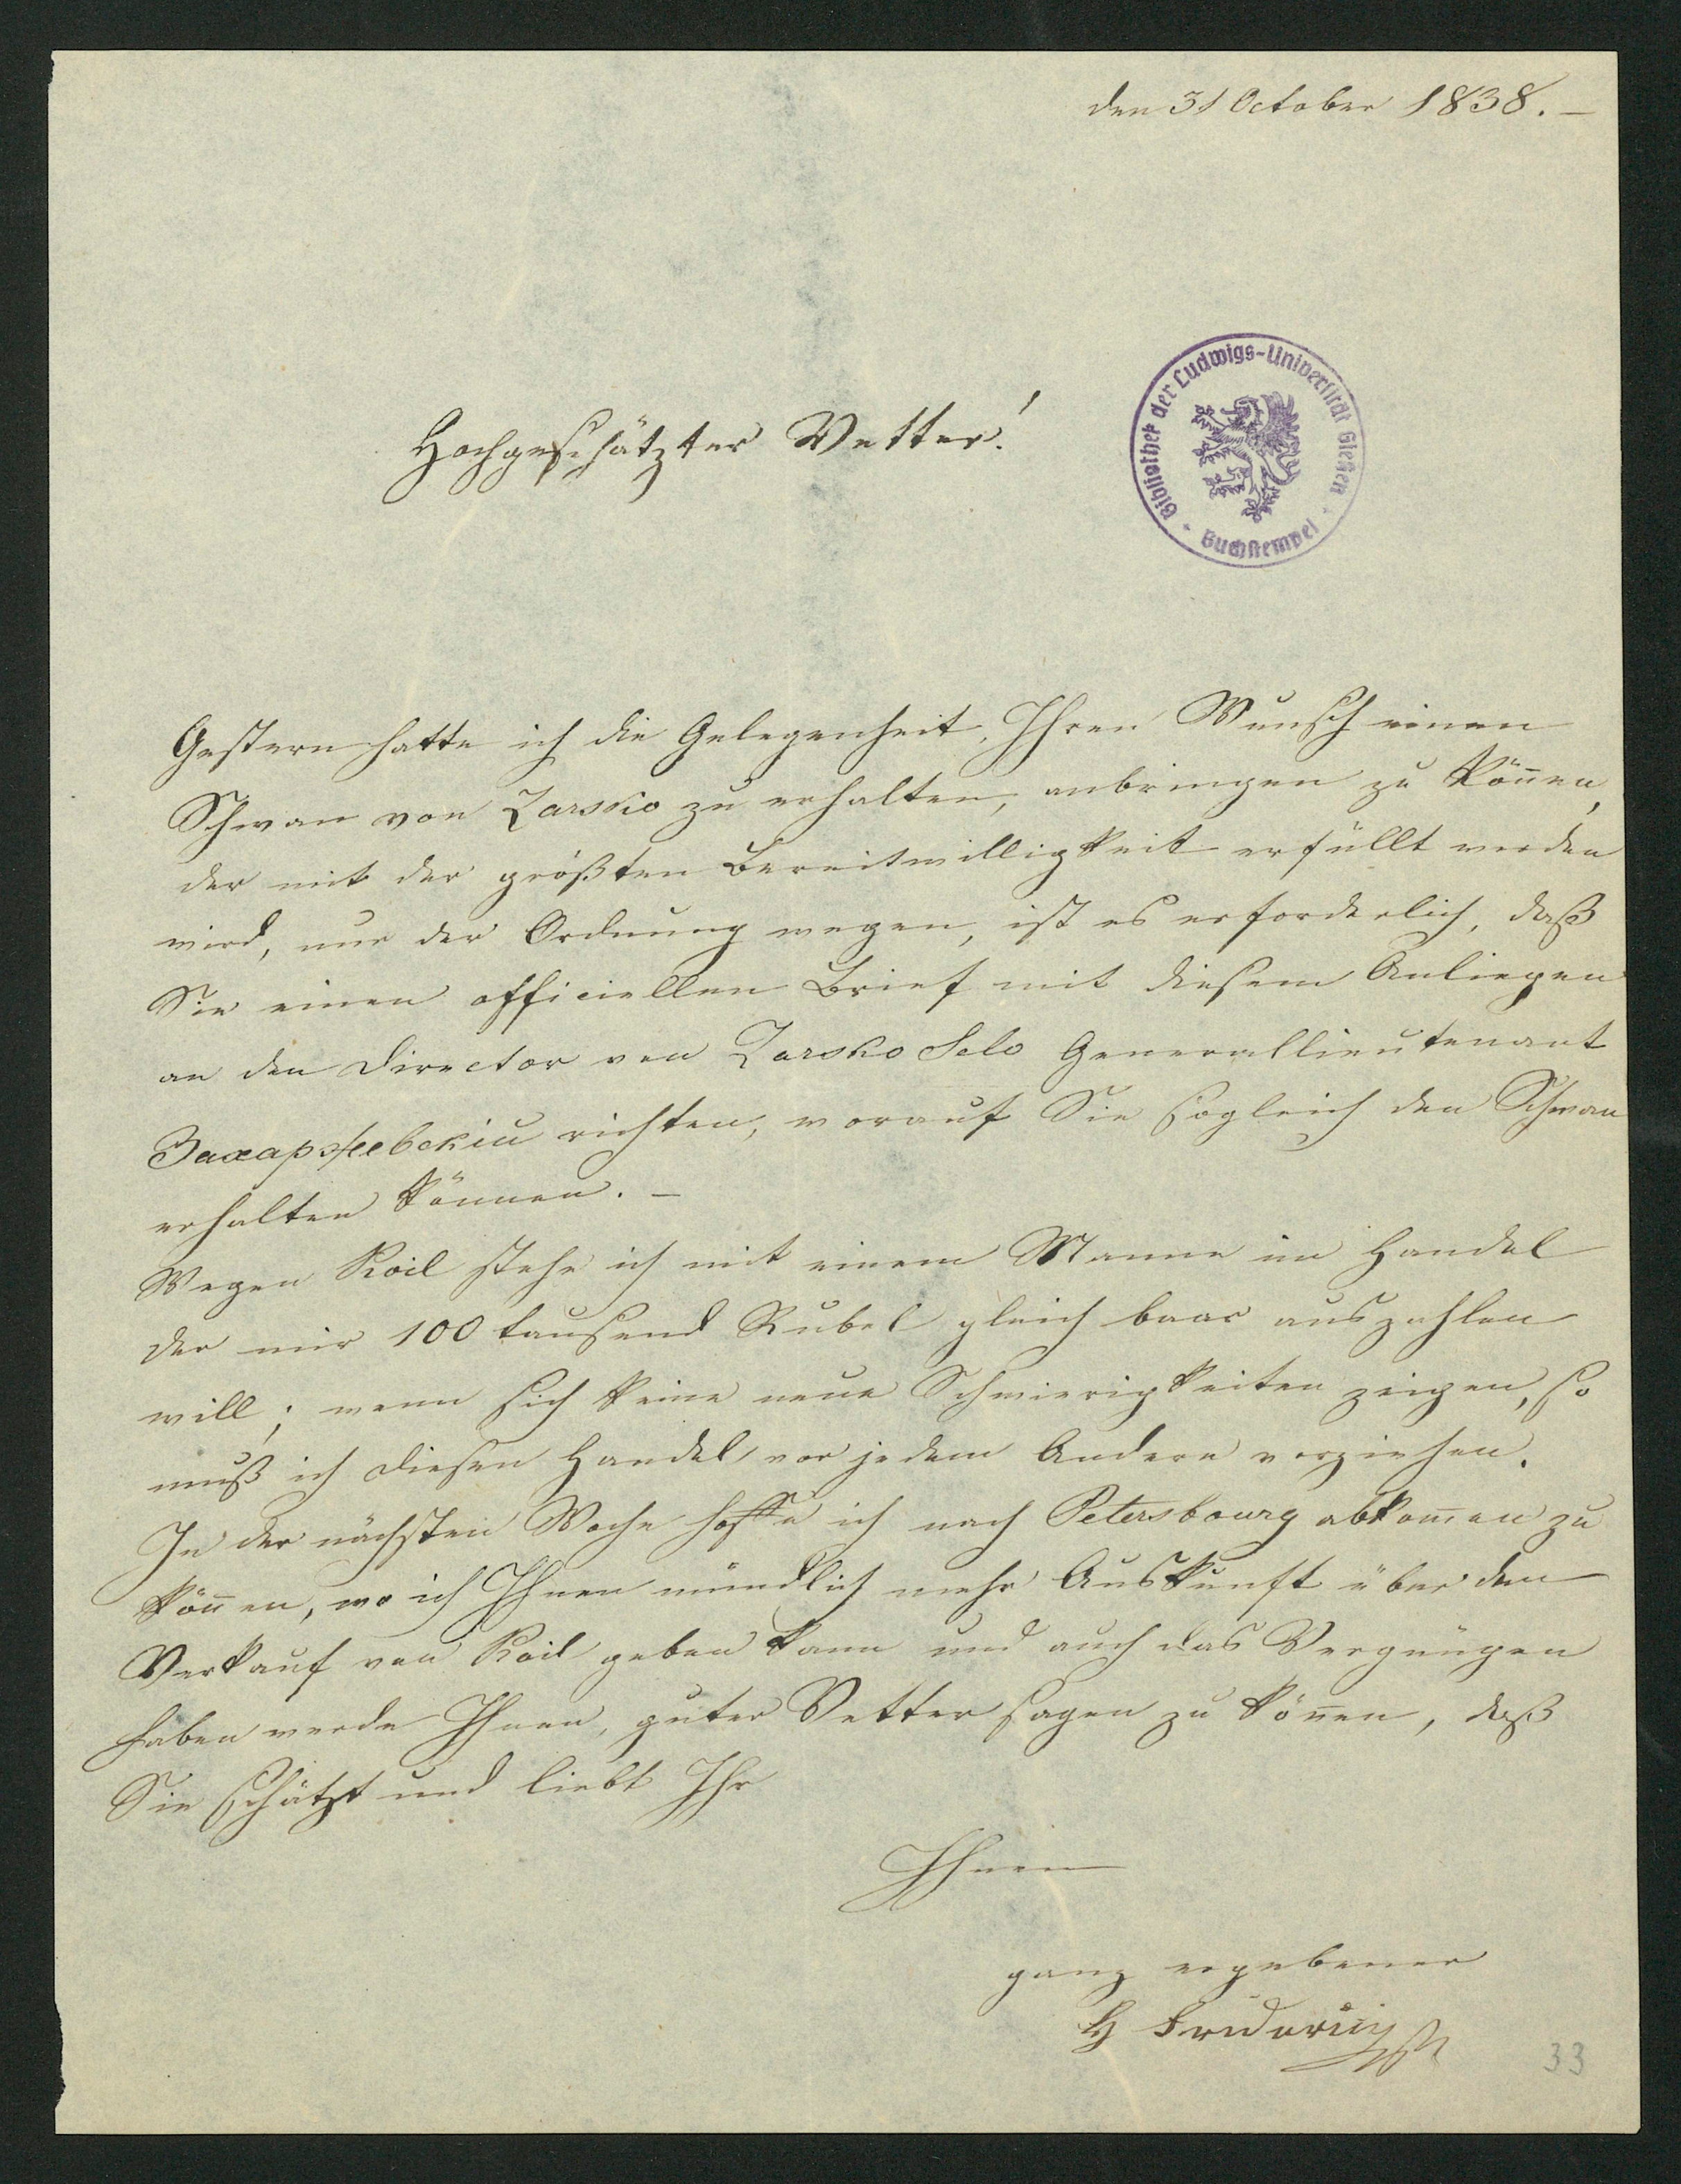 den 31 October 1838. –
Bibliothek der Ludwigs-Universität Gießen
Buchstempel
Hochgeschätzter Vetter!
Gestern hatte ich die Gelegenheit, Ihren Wunsch einen
Schwan von Zarsko zu erhalten, anbringen zu kön̄en,
der mit der größten Bereitwilligkeit erfüllt werden
wird, nur der Ordnung wegen, ist es erforderlich, daß
Sie einen officiellen Brief mit diesem Anliegen
an den Director von Zarsko Selo Generallieutenant
Захаржевскiи richten, worauf Sie sogleich den Schwan
erhalten können. –
Wegen Koil stehe ich mit einem Manne im Handel
der mir 100 tausend Rubel gleich baar auszahlen
will; wenn sich keine neue Schwierigkeiten zeigen, so
muß ich diesen Handel vor jedem Andern vorziehen.
In der nächsten Woche hoffe ich nach Petersbourg abkom̄en zu
kön̄en, wo ich Ihnen mündlich mehr Auskunft über den
Verkauf von Koil geben kann und auch das Vergnügen
haben werde Ihnen, guter Vetter sagen zu kön̄en, daß
Sie schätzt und liebt Ihr
Ihnen
ganz ergebener
33